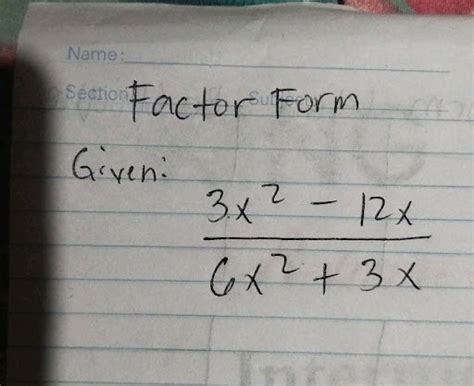 Name:
Section
Factor Form
Given:
3x² - 12x
6x² + 3x